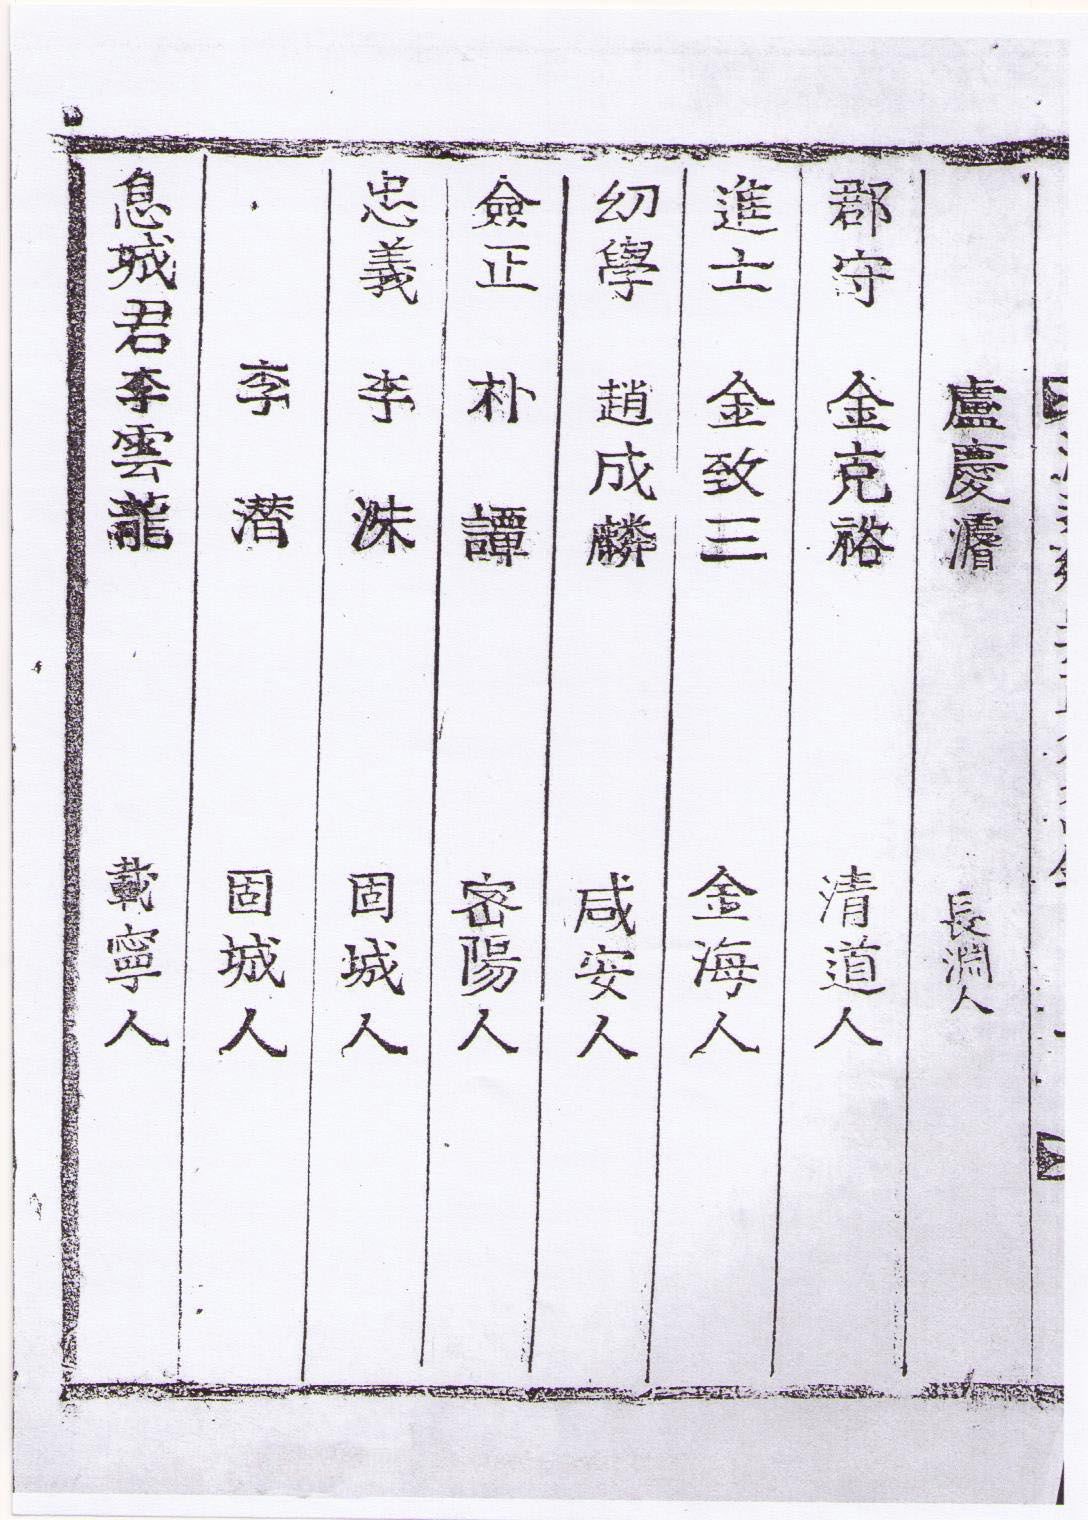 盧慶濬 長淵人
郡守 金克裕 清道人
進士 金致三 金海人
幼學 趙成麟 咸安人
僉正 朴譚 密陽人
忠義 李洙 固城人
李潛 固城人
息城君李雲龍 載寧人